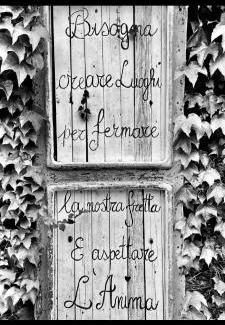 Bisogna
creare Luoghi
per fermare
la nostra fretta
E aspettare
L'Anima